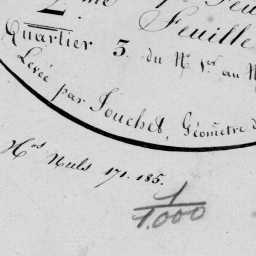 2me
Feuille
Quartier 5. du N° 1er au N
Levée par Jouchet, Géomètre d
Nos Nuls 171. 185.
1/1.000